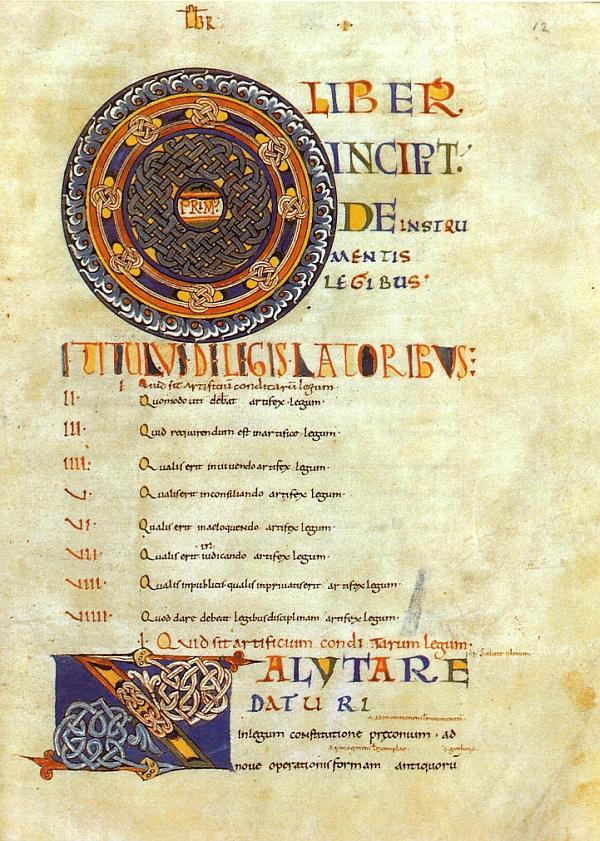 LIBR
12
LIBER
PRIM9
INCIPIT
DE INSTRU
MENTIS
LEGIBUS
I TITULUS DE LEGISLATORIBUS:
I Quid sit artificiũ conditarũ legum.
II. Quomodo uti debeat artifex legum.
III. Quid requirendum est in artifice legum.
IIII. Qualis erit in vivendo artifex legum.
V. Qualis erit in consiliando artifex legum.
VI. Qualis erit in aeloquendo artifex legum.
VII. Qualis erit in iudicando artifex legum.
VIII. Qualis in publicis qualis in privatis erit artifex legum.
VIIII. Quod dare debeat legibus disciplinam artifex legum.
I. Quid sit artificium conditarum legum.
SALUTARE
DATURI
in legum constitutione preconium. ad
nove operationis formam antiquorũ